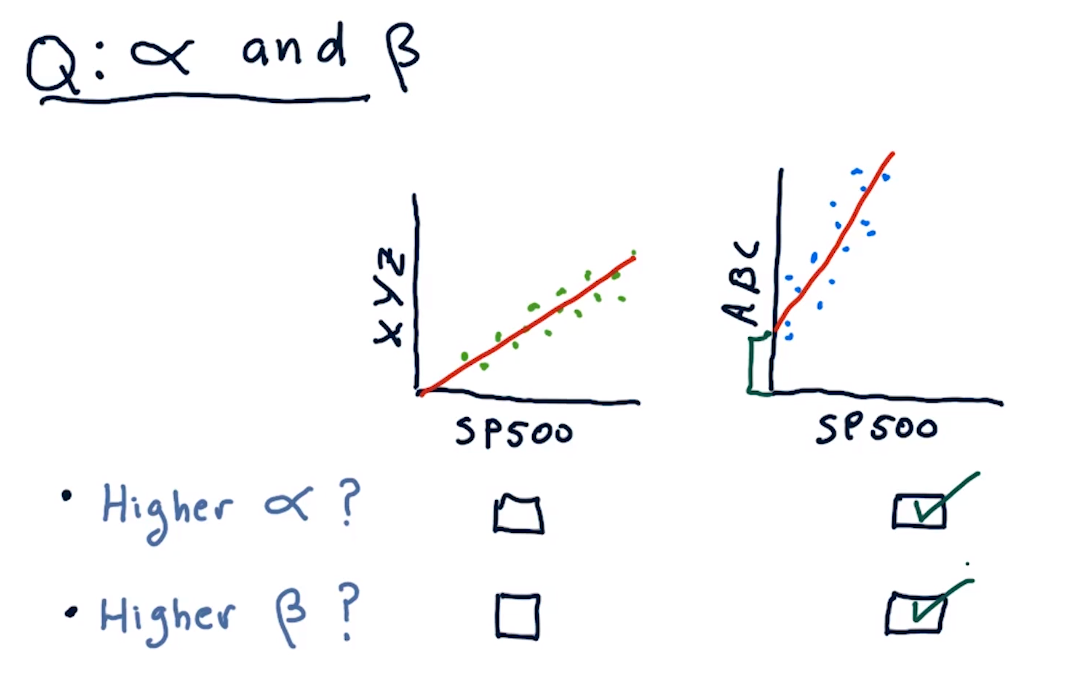 Q: α and β
XYZ
SP500
ABC
SP500
• Higher α ?
• Higher β ?